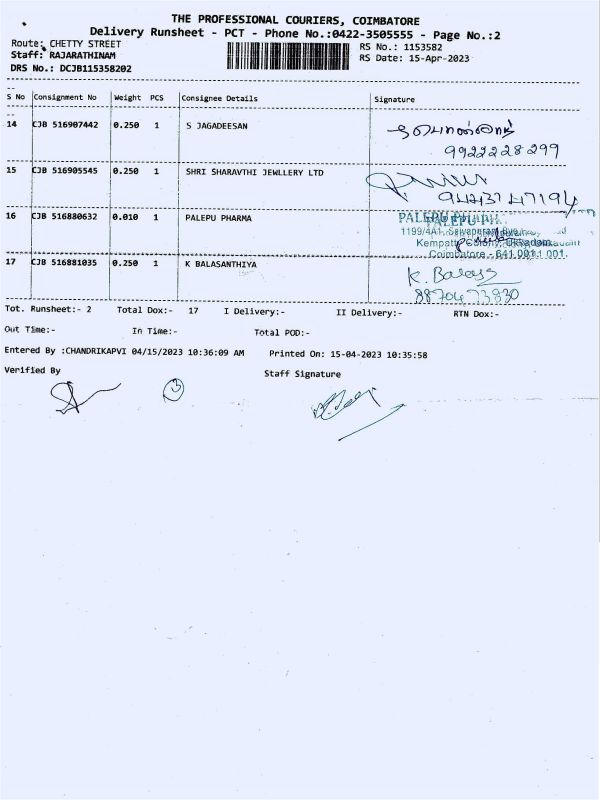 THE PROFESSIONAL COURIERS, COIMBATORE
Delivery Runsheet - PCT - Phone No.:0422-3505555 - Page No.:2
Route: CHETTY STREET
RS No.: 1153582
Staff: RAJARATHINAM
RS Date: 15-Apr-2023
DRS No.: DCJB115358202
S No Consignment No Weight PCS Consignee Details Signature
14 CJB 516907442 0.250 1 S JAGADEESAN
9922228299
15 CJB 516905545 0.250 1 SHRI SHARAVTHI JEWLLERY LTD
9443747194
16 CJB 516880632 0.010 1 PALEPU PHARMA
PALEPU
1199/4A1,
Kempatty Colony,
Coimbatore - 641 001.
17 CJB 516881035 0.250 1 K BALASANTHIYA
K. Balas
88704 73930
Tot. Runsheet:- 2 Total Dox:- 17 I Delivery:- II Delivery:- RTN Dox:-
Out Time:- In Time:- Total POD:-
Entered By :CHANDRIKAPVI 04/15/2023 10:36:09 AM Printed On: 15-04-2023 10:35:58
Verified By Staff Signature
3